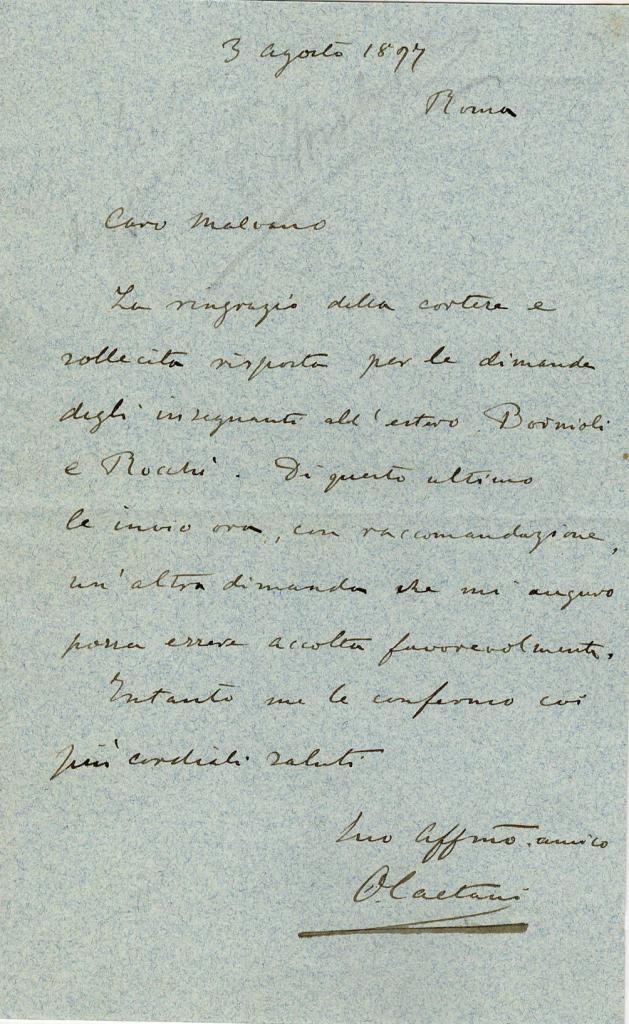 3 agosto 1897
Roma
Caro Malvano
La ringrazio della cortese e
sollecita risposta per le dimande
degli insegnanti all'estero Bornioli
e Rocchi. Di questo ultimo
le invio ora, con raccomandazione,
un'altra dimanda che mi auguro
possa essere accolta favorevolmente.
Intanto me le confermo coi
più cordiali saluti
Suo Affmo. amico
O. Caetani